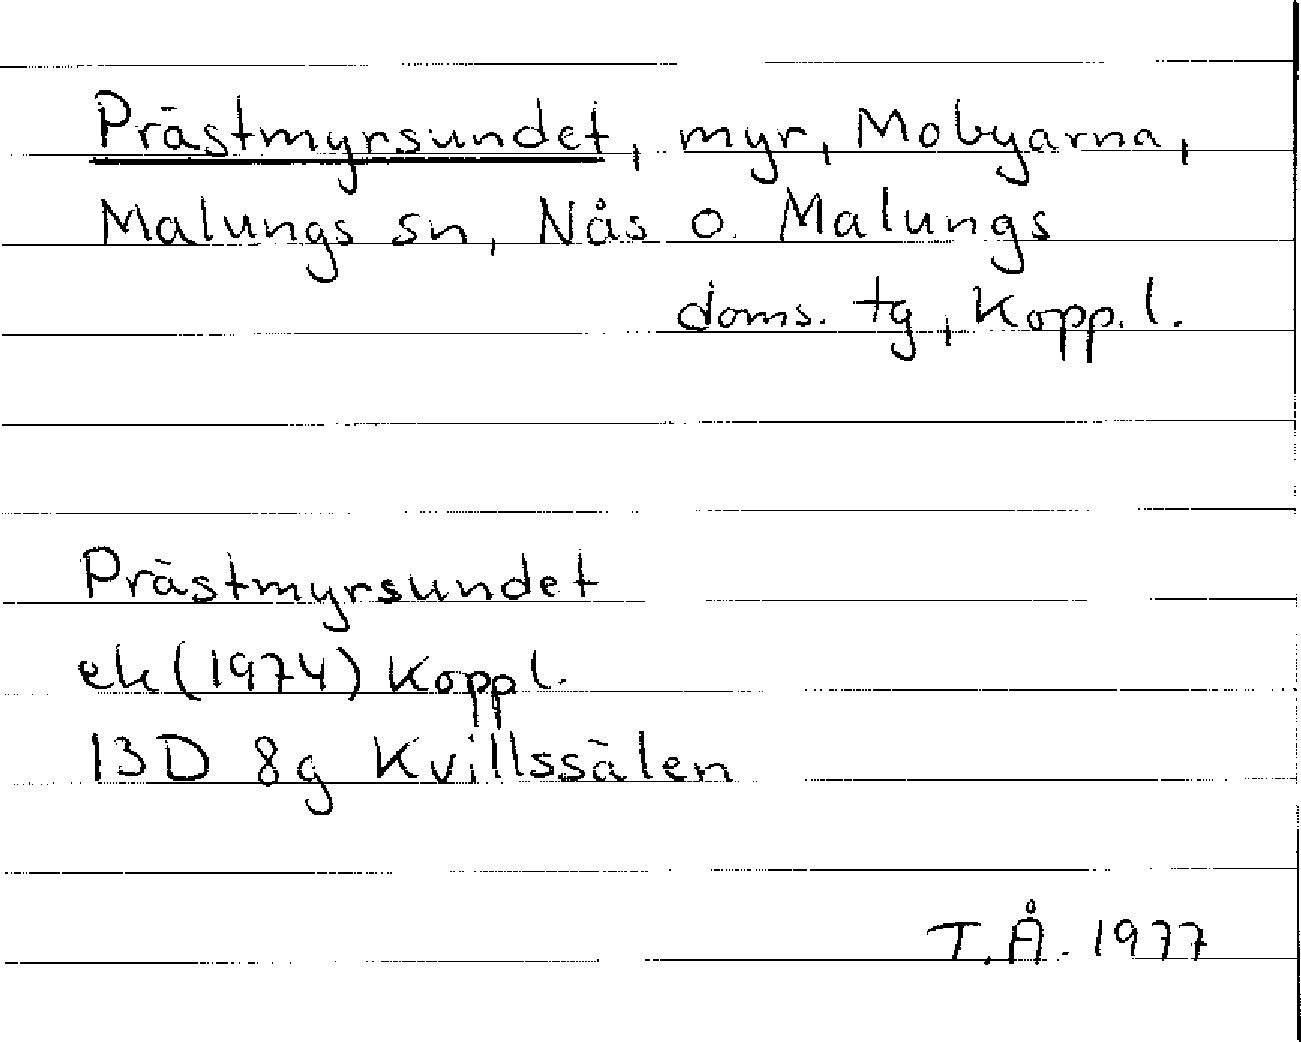 Prästmyrsundet, myr, Mobyarna,
Malungs sn, Nås o. Malungs
doms. tg, Kopp. l.
Prästmyrsundet
ek (1974) Kopp l.
13D 8g Kvillssälen
T.Å. 1977